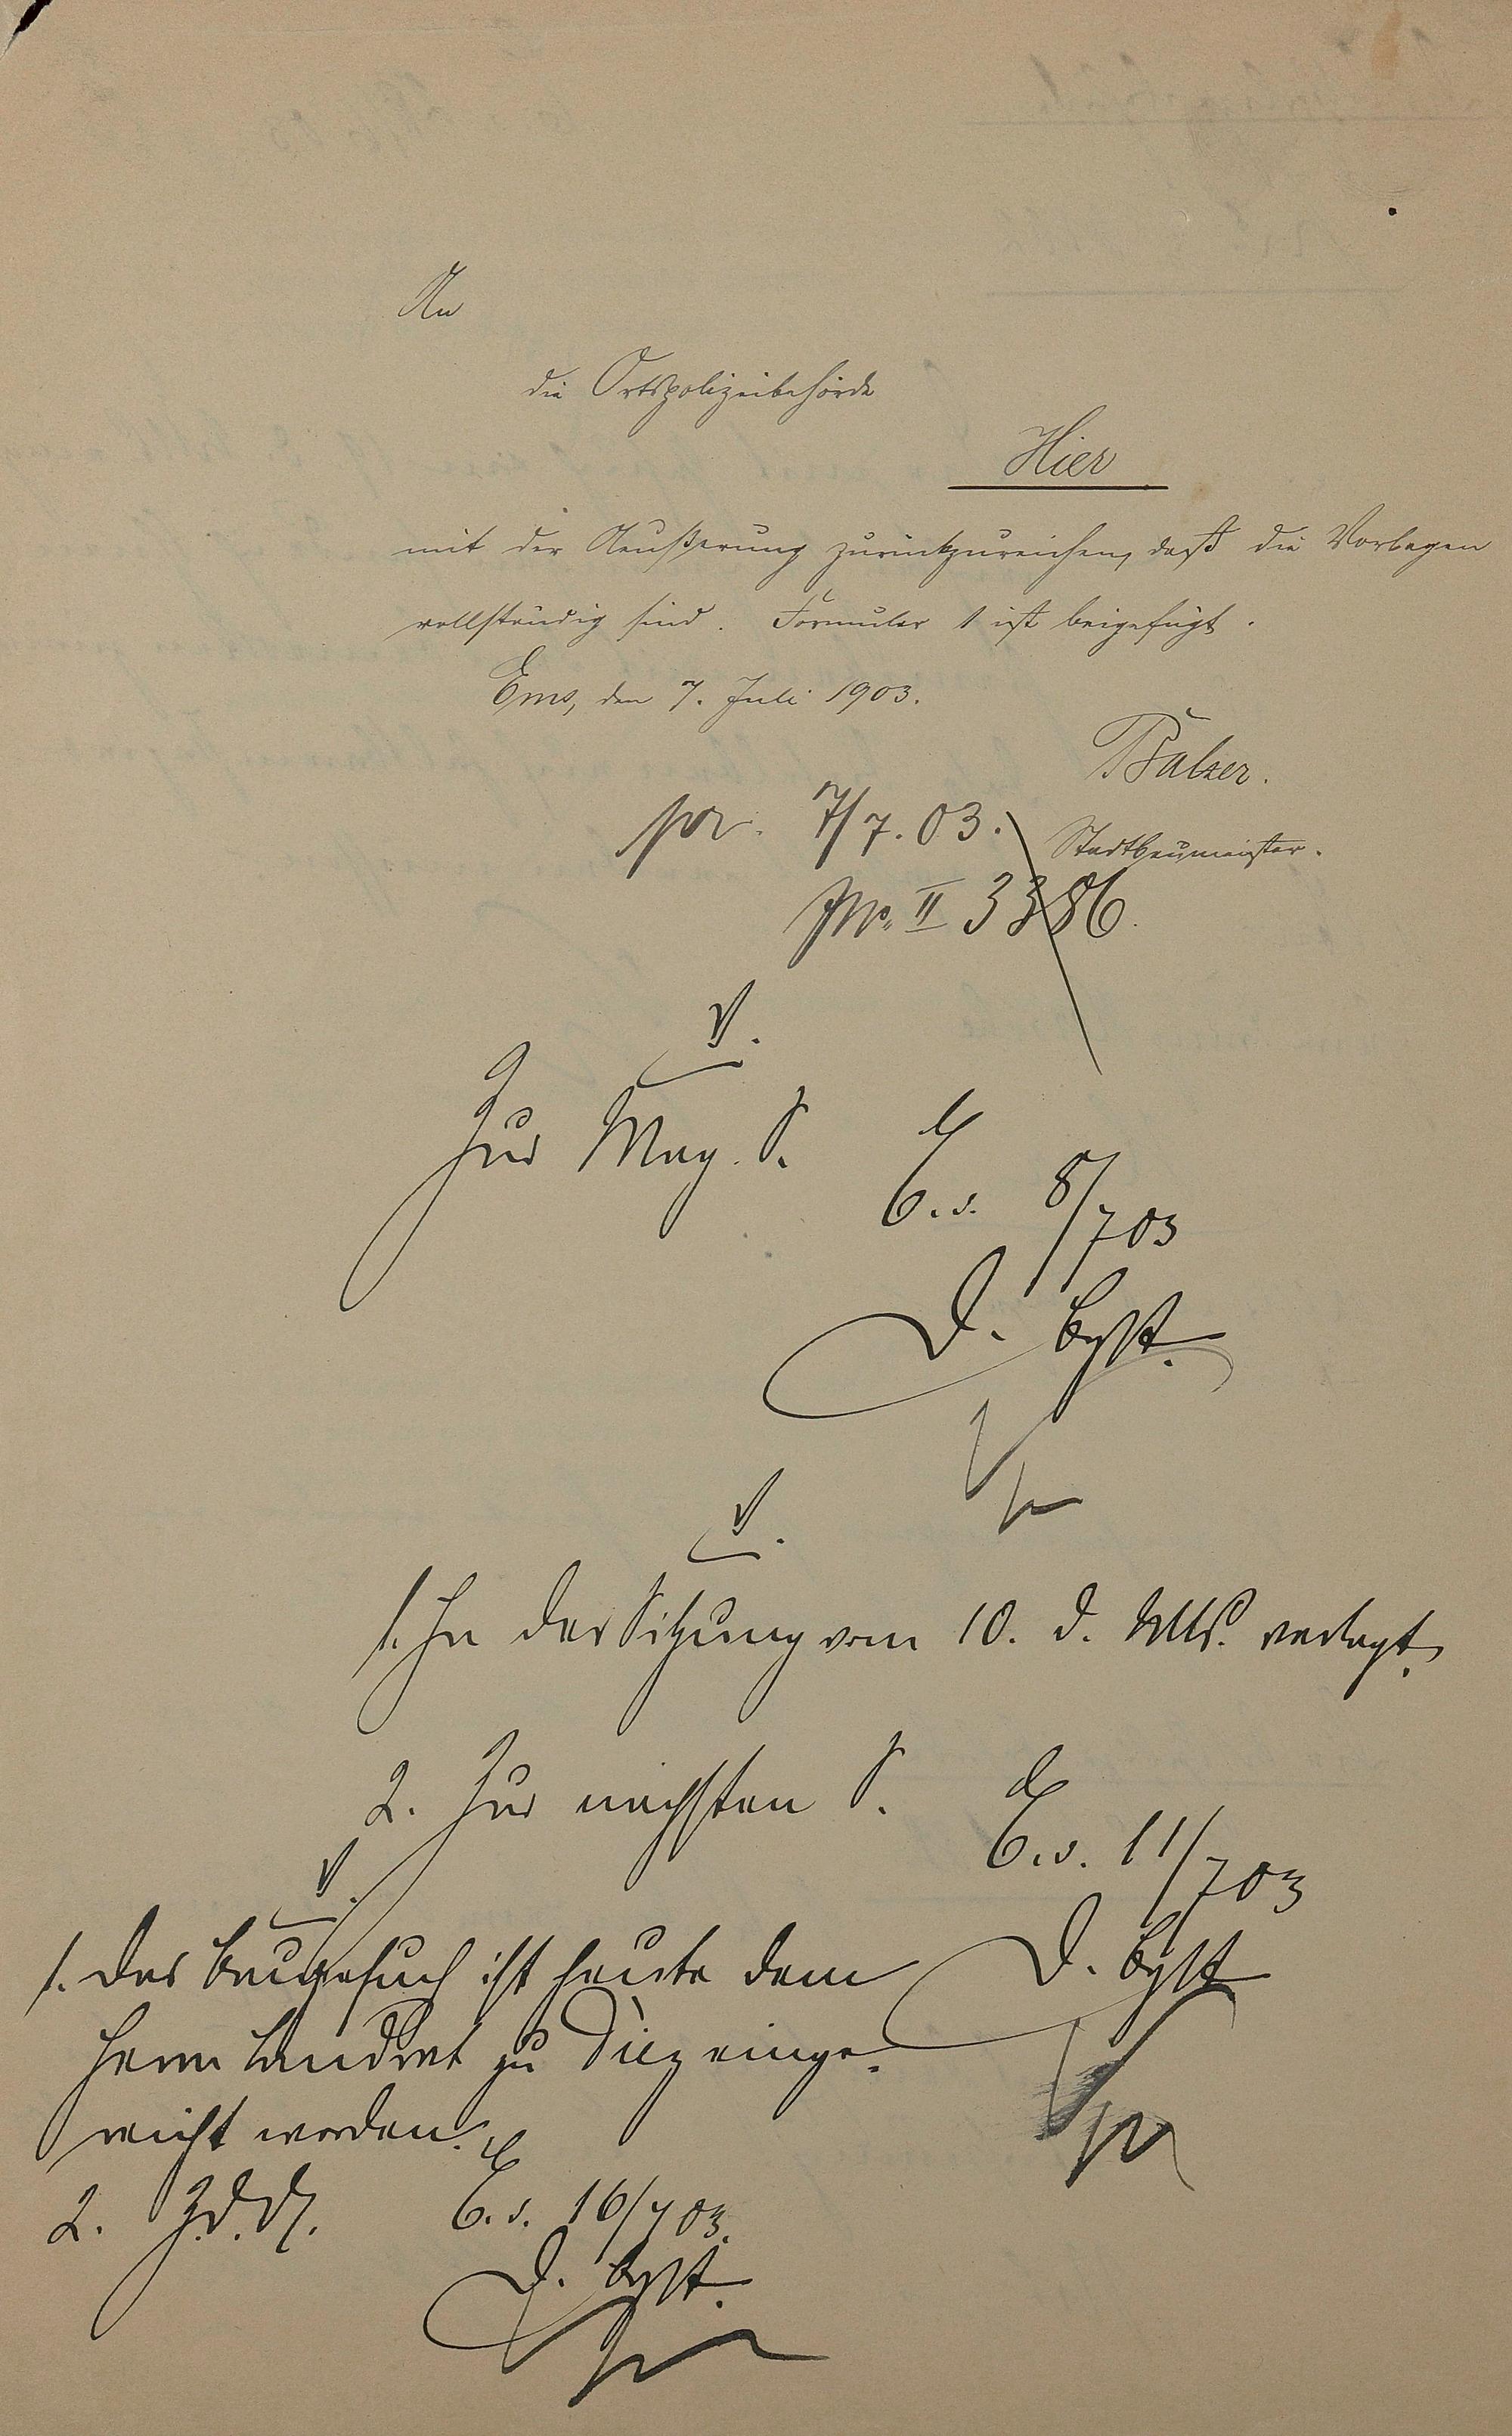 An
die Ortspolizeibehörde
Hier
mit der Aeußerung zurückzureichen, daß die Vorlagen
vollständig sind. Formular 1 ist beigefügt.
Ems, den 7. Juli 1903.
Balzer.
Stadtbaumeister.
pr. 7/7.03.
JNo. II 3386.
V.
Zur Mag. S.
E. d. 8/7 03
D. Bgst.
V.
1. In der Sitzung vom 10. d. Mts. vertagt.
2. Zur nächsten S.
E. d. 11/7 03
D. Bgst
V.
1. Das Baugesuch ist heute dem
Herrn Landrat zu Diez einge-
reicht worden.
2. Z. d. A.
E. d. 16/7 03.
D. Bgst.